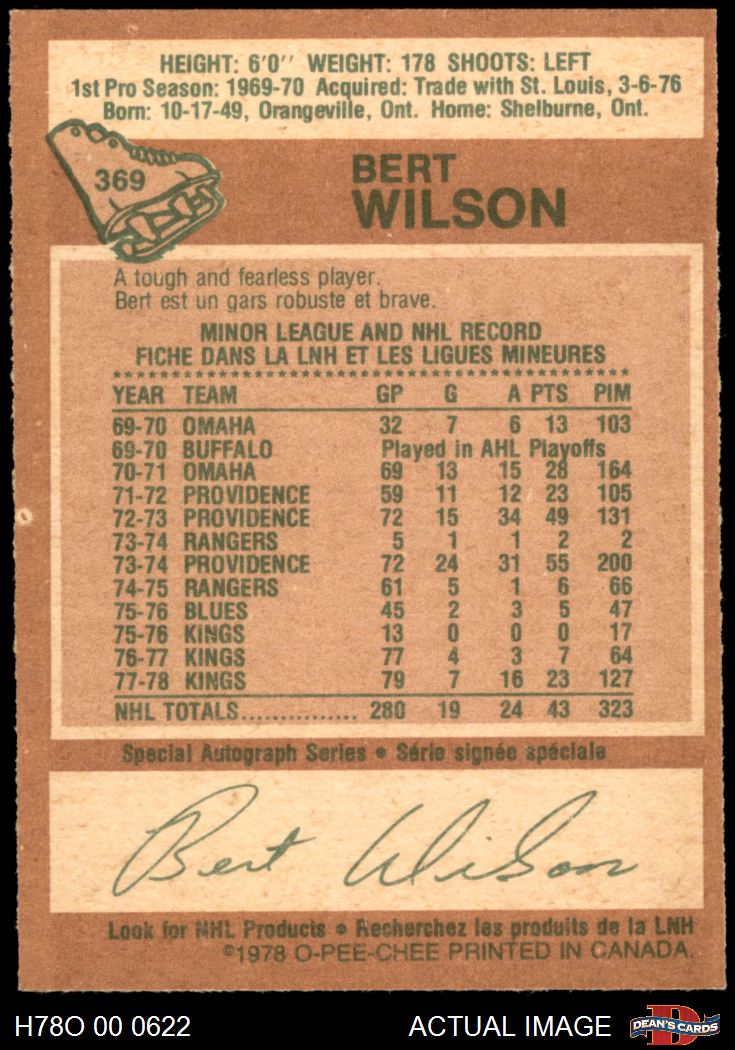 HEIGHT: 6'0'' WEIGHT: 178 SHOOTS: LEFT
1st Pro Season: 1969-70 Acquired: Trade with St. Louis, 3-6-76
Born: 10-17-49, Orangeville, Ont. Home: Shelburne, Ont.
369
BERT
WILSON
A tough and fearless player.
Bert est un gars robuste et brave.
MINOR LEAGUE AND NHL RECORD
FICHE DANS LA LNH ET LES LIGUES MINEURES
YEAR TEAM GP G A PTS PIM
69-70 OMAHA 32 7 6 13 103
69-70 BUFFALO Played in AHL Playoffs
70-71 OMAHA 69 13 15 28 164
71-72 PROVIDENCE 59 11 12 23 105
72-73 PROVIDENCE 72 15 34 49 131
73-74 RANGERS 5 1 1 2 2
73-74 PROVIDENCE 72 24 31 55 200
74-75 RANGERS 61 5 1 6 66
75-76 BLUES 45 2 3 5 47
75-76 KINGS 13 0 0 0 17
76-77 KINGS 77 4 3 7 64
77-78 KINGS 79 7 16 23 127
NHL TOTALS................ 280 19 24 43 323
Special Autograph Series • Série signée spéciale
Bert Wilson
Look for NHL Products • Recherchez les produits de la LNH
©1978 O-PEE-CHEE PRINTED IN CANADA.
H78O 00 0622 ACTUAL IMAGE D DEAN'S CARDS